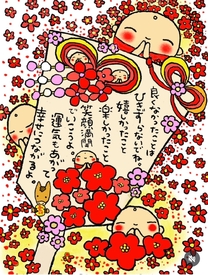 良くなかったことは
ひきずらないでね。
嬉しかったこと
楽しかったこと
笑顔満開
でいこうよ
運気もあがって
幸せにつながるよ